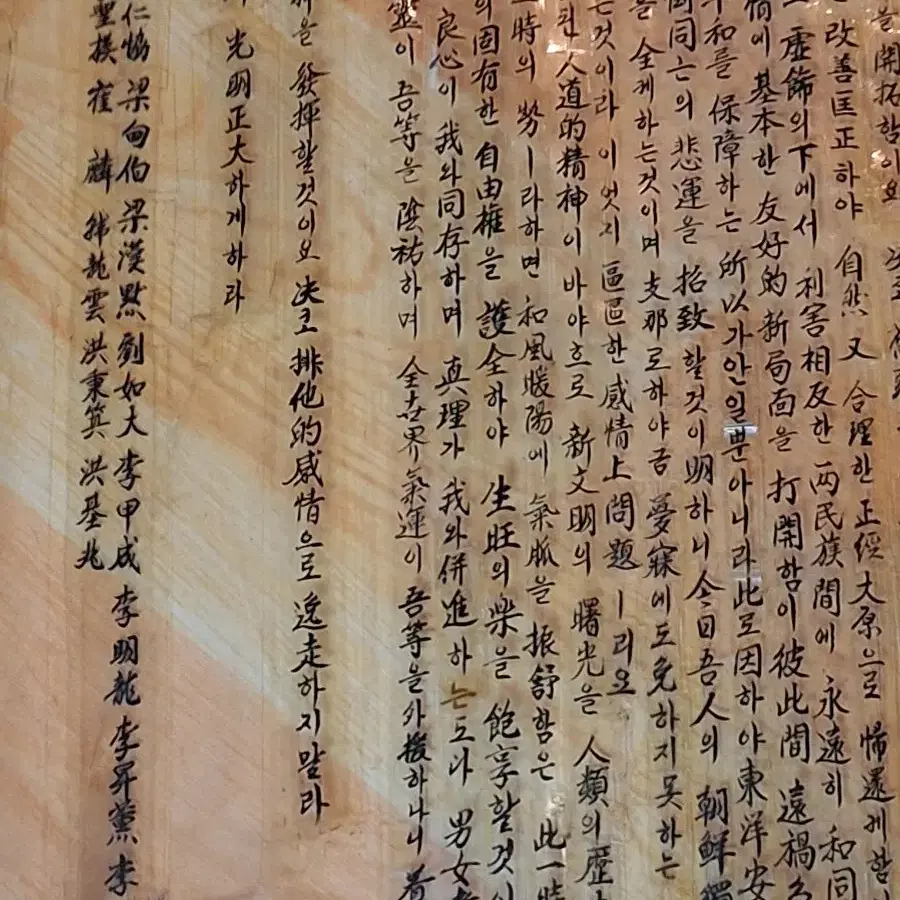 을開拓함이요
改善匡正하야 自然 又 合理한 正經大原으로 歸還케함
虛飾의下에서 利害相反한 两民族間에 永遠히 和同
情에基本한 友好的新局面을 打開함이 彼此間 遠禍
和를 保障하는 所以가안일뿐아니라此로因하야東洋安
同亡의 悲運을 招致할것이明하니 今日吾人의 朝鮮獨
을 全케하는것이며支那로하야금 夢寐에도免하지못하는
는것이라 이엇지 區區한 感情上問題ㅣ리요
된人道的精神이 바야흐로 新文明의 曙光을 人類의歷
時의 勢ㅣ라하면 和風暖陽에 氣脈을 振舒함은 此一時
의固有한 自由權을 護全하야 生旺의樂을 飽享할것이
良心이 我와同存하며 真理가 我와併進하는도다 男女
靈이 吾等을 陰祐하며 全世界氣運이 吾等을外援하나니 着
을 發揮할것이요 决코 排他的感情으로 逸走하지말라
光明正大하게하라
仁協 梁甸伯 梁漢默 劉如大 李甲成 李明龍 李昇薰 李
聖模 崔麟 韓龍雲 洪秉箕 洪基兆